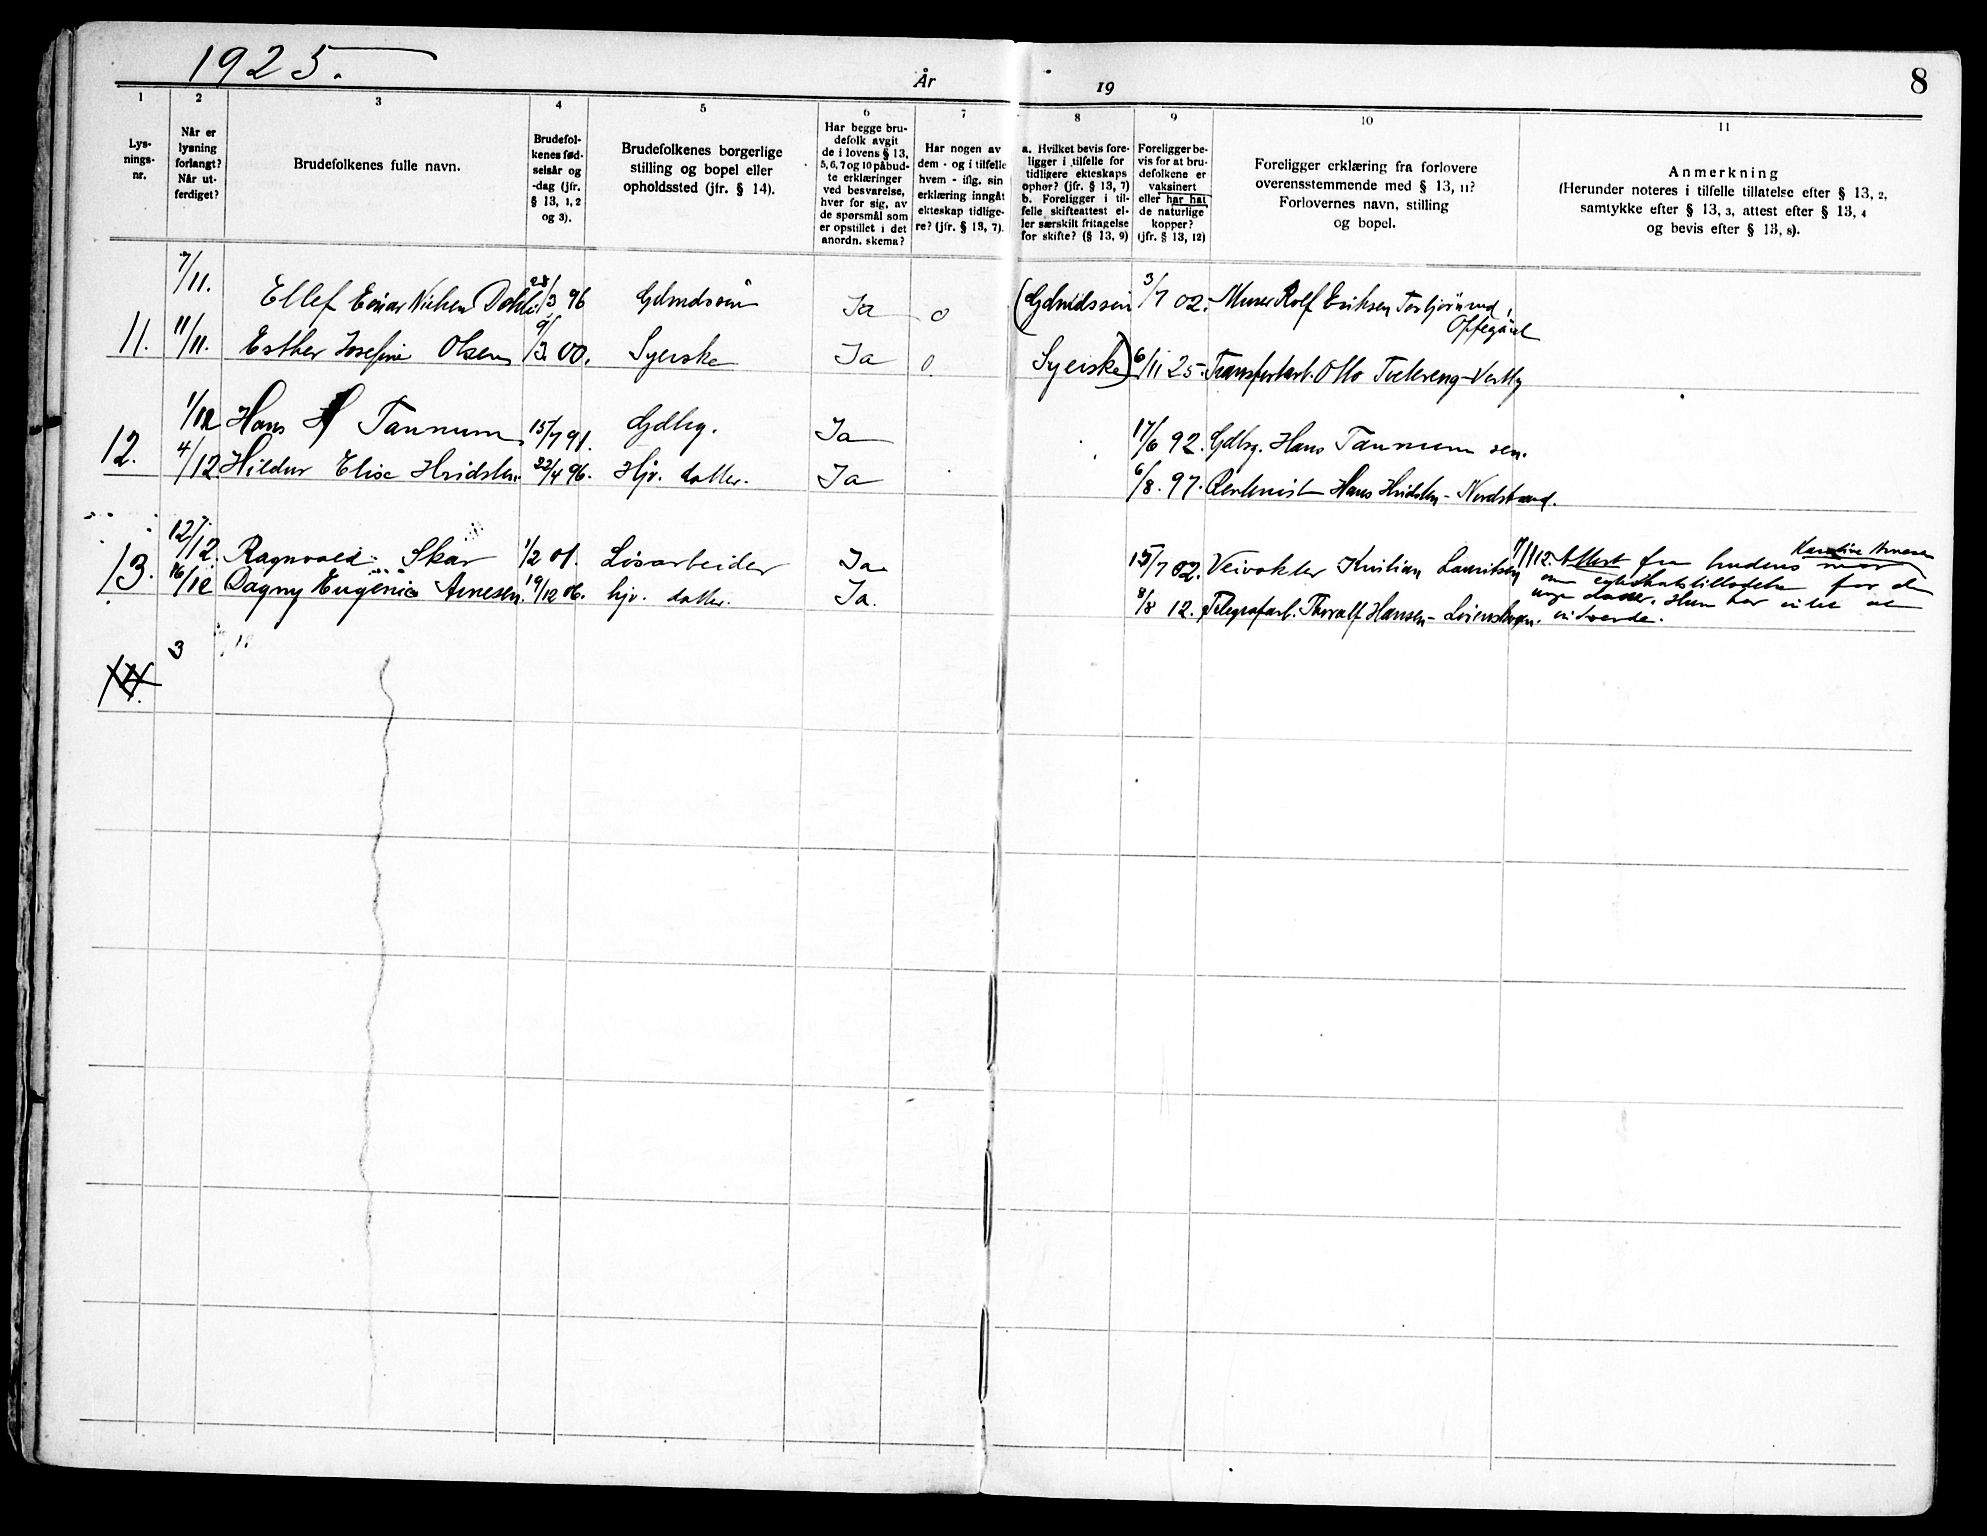 1925.
År
19
8
1
2
3
4
5
6
7
8
9
10
11
Lys-
nings-
nr.
Når er
lysning
forlangt?
Når ut-
ferdiget?
Brudefolkenes fulle navn.
Brudefol-
kenes fød-
selsår og
-dag (jfr.
§ 13, 1, 2
og 3).
Brudefolkenes borgerlige
stilling og bopel eller
opholdssted (jfr. § 14).
Har begge bru-
defolk avgit
de i lovens § 13,
5, 6, 7 og 10 påbud-
te erklæringer
ved besvarelse,
hver for sig, av
de spørsmål som
er opstillet i det
anordn. skema?
Har nogen av
dem - og i tilfelle
hvem - iflg. sin
erklæring inngåt
ekteskap tidlige-
re? (jfr. § 13, 7).
a. Hvilket bevis fore-
ligger i tilfelle for
tidligere ekteskaps
ophør? (jfr. § 13, 7)
b. Foreligger i til-
felle skifteattest el-
ler særskilt fritagelse
for skifte? (§ 13, 9)
Foreligger be-
vis for at bru-
defolkene er
vaksinert
eller har hat
de naturlige
kopper?
(jfr. § 13, 12)
Foreligger erklæring fra forlovere
overensstemmende med § 13, 11?
Forlovernes navn, stilling
og bopel.
Anmerkning
(Herunder noteres i tilfelle tillatelse efter § 13, 2,
samtykke efter § 13, 3, attest efter § 13, 4
og bevis efter § 13, 8).
7/11. Ellef Einar Nielsen Dahl 28/3 96 Gdmdssøn Ja 0 (Gdmdssøn 3/7 02. Murer Rolf Eriksen Torbjørnrud,
Oppegård
11. 11/11. Esther Josefine Olsen 9/3. 00. Syerske Ja 0. Syerske) 6/11 25. Transportarb. Otto Tvetereng - Vestby
1/12 Hans H Tannum 15/7 91. Gdbg. Ja 17/6 92. Gdbsg. Hans Tannum sen.
12. 4/12. Hildur Elise Hvidsten 22/4 96. Hjv. datter. Ja 6/8. 97. Hans Hvidsten - Nordstrand.
12/12. Ragnvald Skar 1/2 01. Løsarbeider Ja 15/7 02. Veivokter Kristian Lauritsen
13. 16/12 Dagny Eugenie Arnesen. 19/12 06. hjv. datter. Ja. 8/8 12. Telegrafarb. Thoralf Hansen - Lørenskogen.
Karoline Arnesen
Attest fra brudens mor
om egteskapstillatelse for den
unge datter. Hun har intet at
indvende.
3
14.